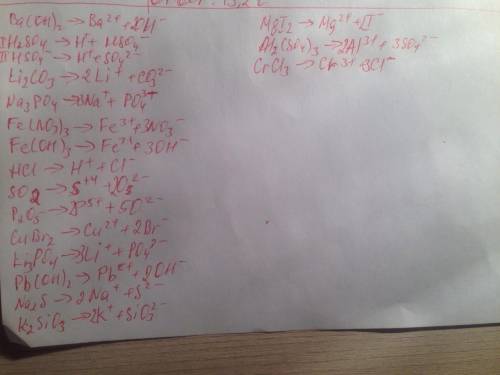 Ba(OH)₂ → Ba²⁺ + 2OH⁻
I H₂SO₄ → H⁺ + HSO₄⁻
II HSO₄⁻ → H⁺ + SO₄²⁻
Li₂CO₃ → 2Li⁺ + CO₃²⁻
Na₃PO₄ → 3Na⁺ + PO₄³⁻
Fe(NO₃)₃ → Fe³⁺ + 3NO₃⁻
Fe(OH)₃ → Fe³⁺ + 3OH⁻
HCl → H⁺ + Cl⁻
SO₂ → S⁺⁴ + 2O²⁻
P₂O₅ → 2P⁵⁺ + 5O²⁻
CuBr₂ → Cu²⁺ + 2Br⁻
Li₃PO₄ → 3Li⁺ + PO₄³⁻
Pb(OH)₂ → Pb²⁺ + 2OH⁻
Na₂S → 2Na⁺ + S²⁻
K₂SiO₃ → 2K⁺ + SiO₃²⁻
MgI₂ → Mg²⁺ + I⁻
Al₂(SO₄)₃ → 2Al³⁺ + 3SO₄²⁻
CrCl₃ → Cr³⁺ + 3Cl⁻